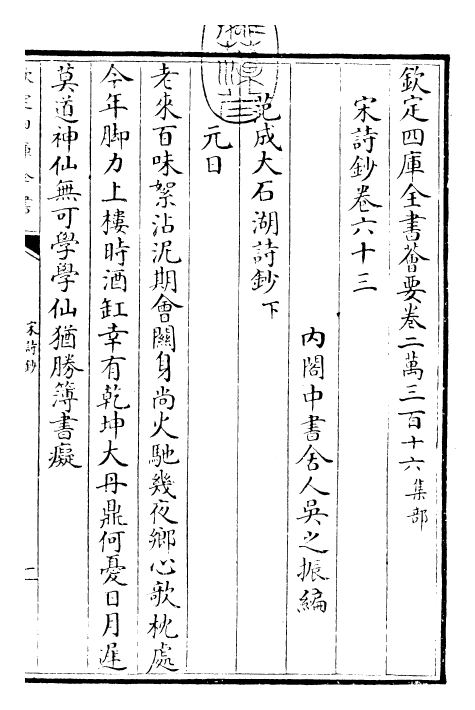 欽定四庫全書薈要卷二萬三百十六集部
宋詩鈔卷六十三
內閣中書舍人吳之振編
范成大石湖詩鈔下
元日
老來百味絮沾泥期會關身尚火馳幾夜鄉心欹枕處
今年脚力上樓時酒缸幸有乾坤大丹鼎何憂日月遲
莫道神仙無可學學仙猶勝簿書癡
宋詩鈔
一